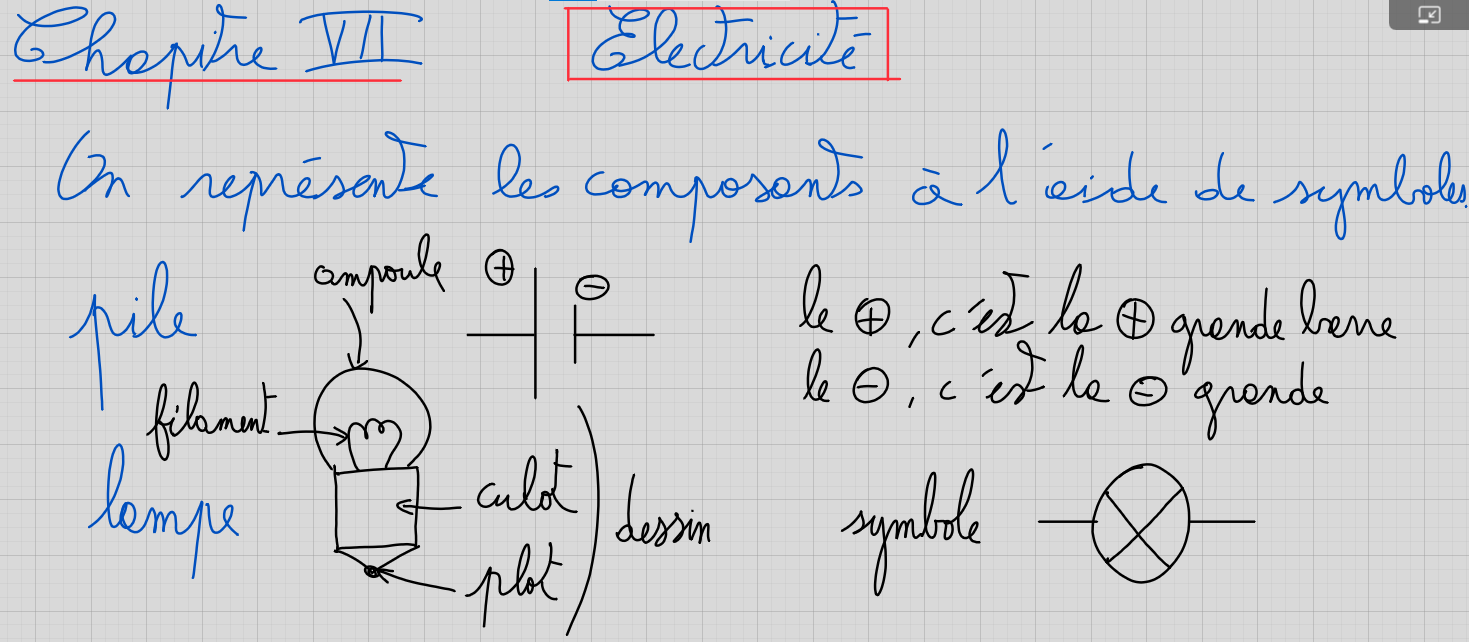 Chapitre VII Electricité
On représente les composants à l'aide de symboles.
pile
ampoule
⊕ ⊖
le ⊕, c'est la ⊕ grande barre
le ⊖, c'est la ⊖ grande
filament
lampe
culot
plot
dessin
symbole